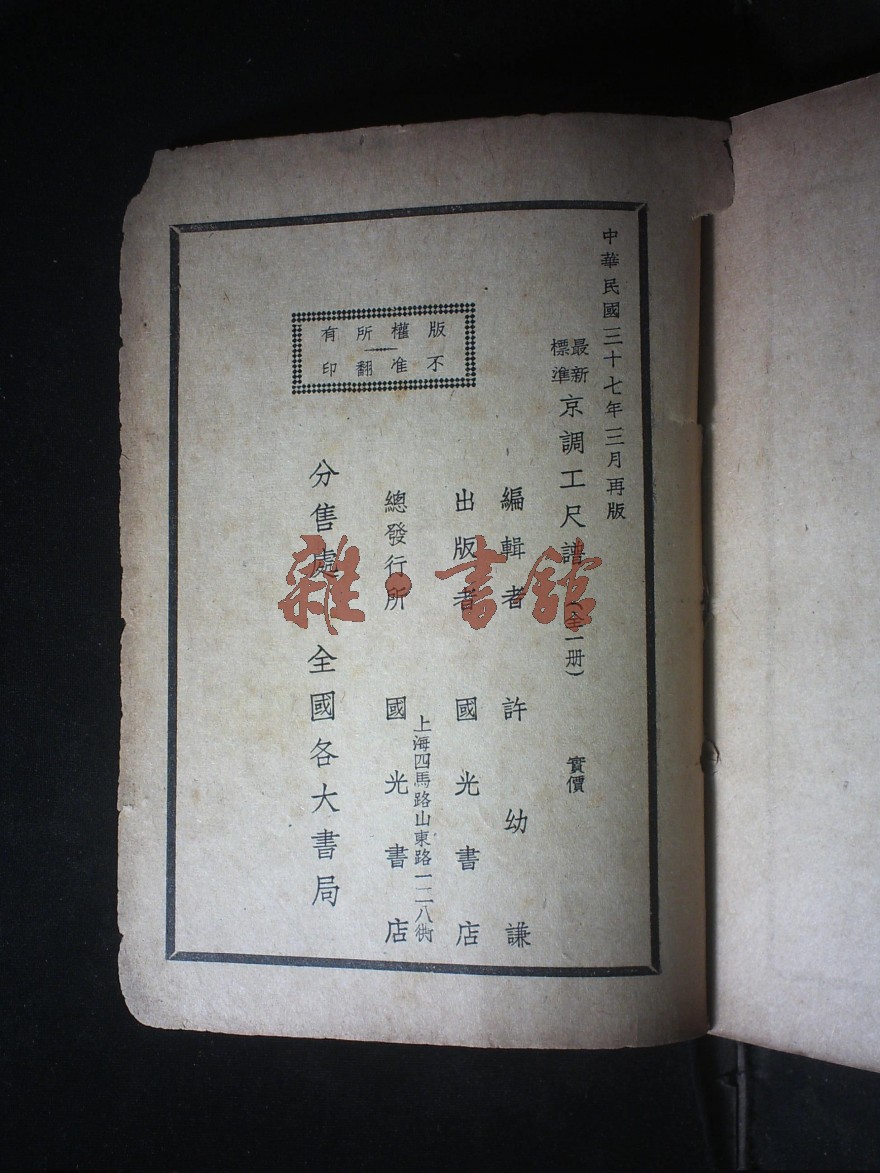 中華民國三十七年三月再版
最新標準 京調工尺譜（全一册） 實價
編輯者 許幼謙
出版者 國光書店
上海四馬路山東路一二八衖
總發行所 國光書店
分售處 全國各大書局
版權所有
不准翻印
雜·書館